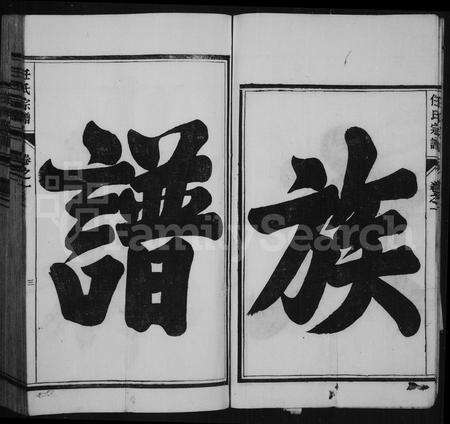 族
譜
任氏宗譜
卷之一
任氏宗譜
卷之一
三
FamilySearch